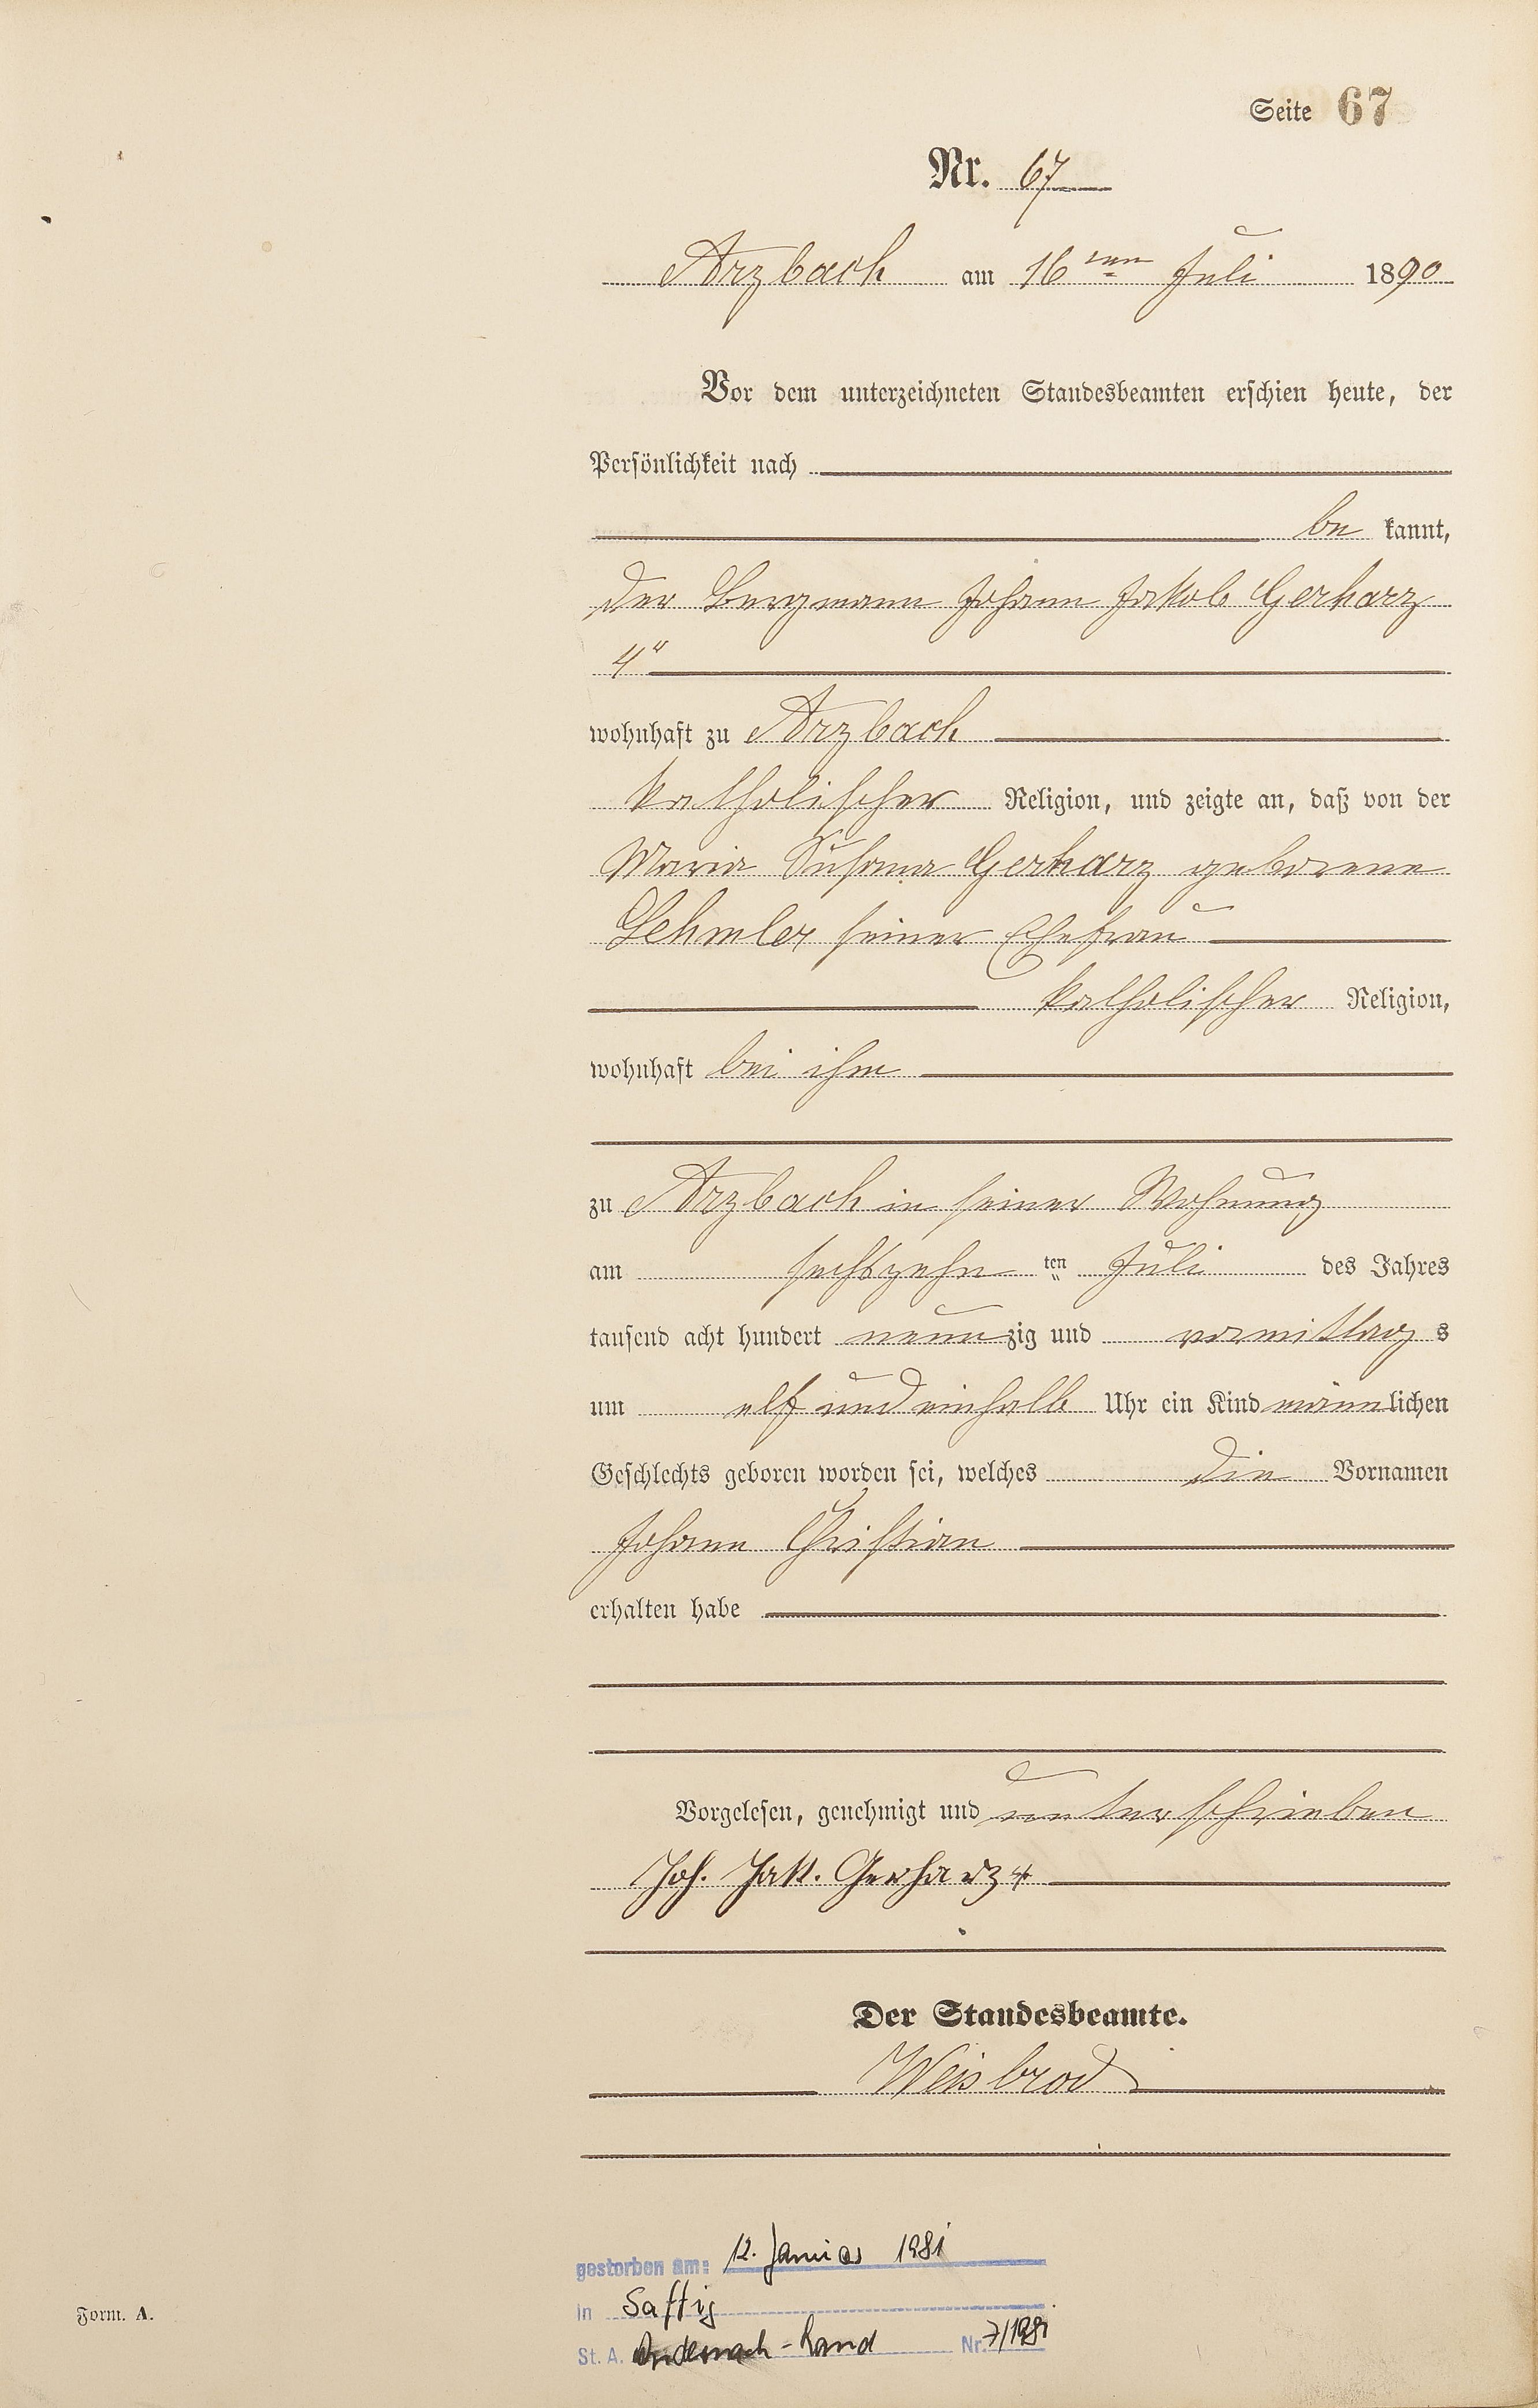 Seite 67
Nr. 67
Arzbach am 16ten Juli 1890
Vor dem unterzeichneten Standesbeamten erschien heute, der
Persönlichkeit nach
be kannt,
der Bergmann Johann Jakob Gerharz
4"
wohnhaft zu Arzbach
katholischer Religion, und zeigte an, daß von der
Maria Susana Gerharz geborene
Lehmler seiner Ehefrau
katholischer Religion,
wohnhaft bei ihm
zu Arzbach in seiner Wohnung
am sechszehn ten Juli des Jahres
tausend acht hundert neunzig und vormittag s
um elf und einhalb Uhr ein Kind männlichen
Geschlechts geboren worden sei, welches die Vornamen
Johann Christian
erhalten habe
Vorgelesen, genehmigt und unterschrieben
Joh. Jak. Gerharz 4
Der Standesbeamte.
Weisbrod
gestorben am: 12. Januar 1981
in Saffig
St. A. Andernach-Land Nr. 7/1981
Form. A.